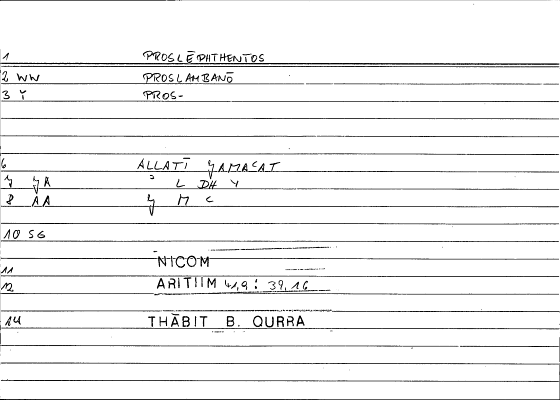 1 PROSLĒPHTHENTOS
2 WW PROSLAMBANŌ
3 Y PROS-
6 ALLATĪ
L DH Y
8 AA M C
10 SG
11 NICOM
12 ARITIIM 41,9 : 39,16
14 THĀBIT B. QURRA